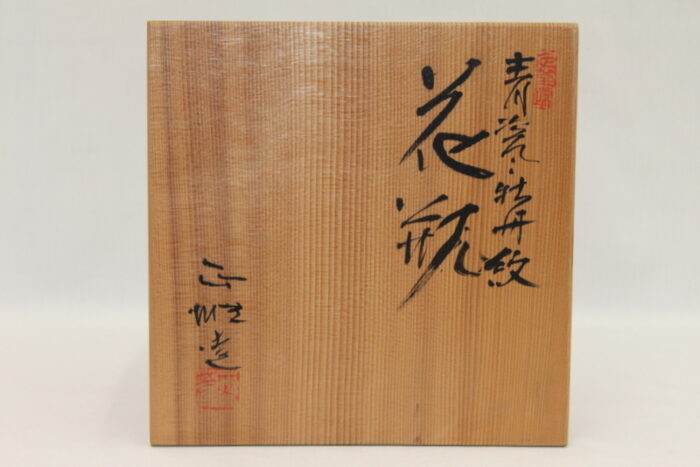 青瓷牡丹紋
花瓶
造